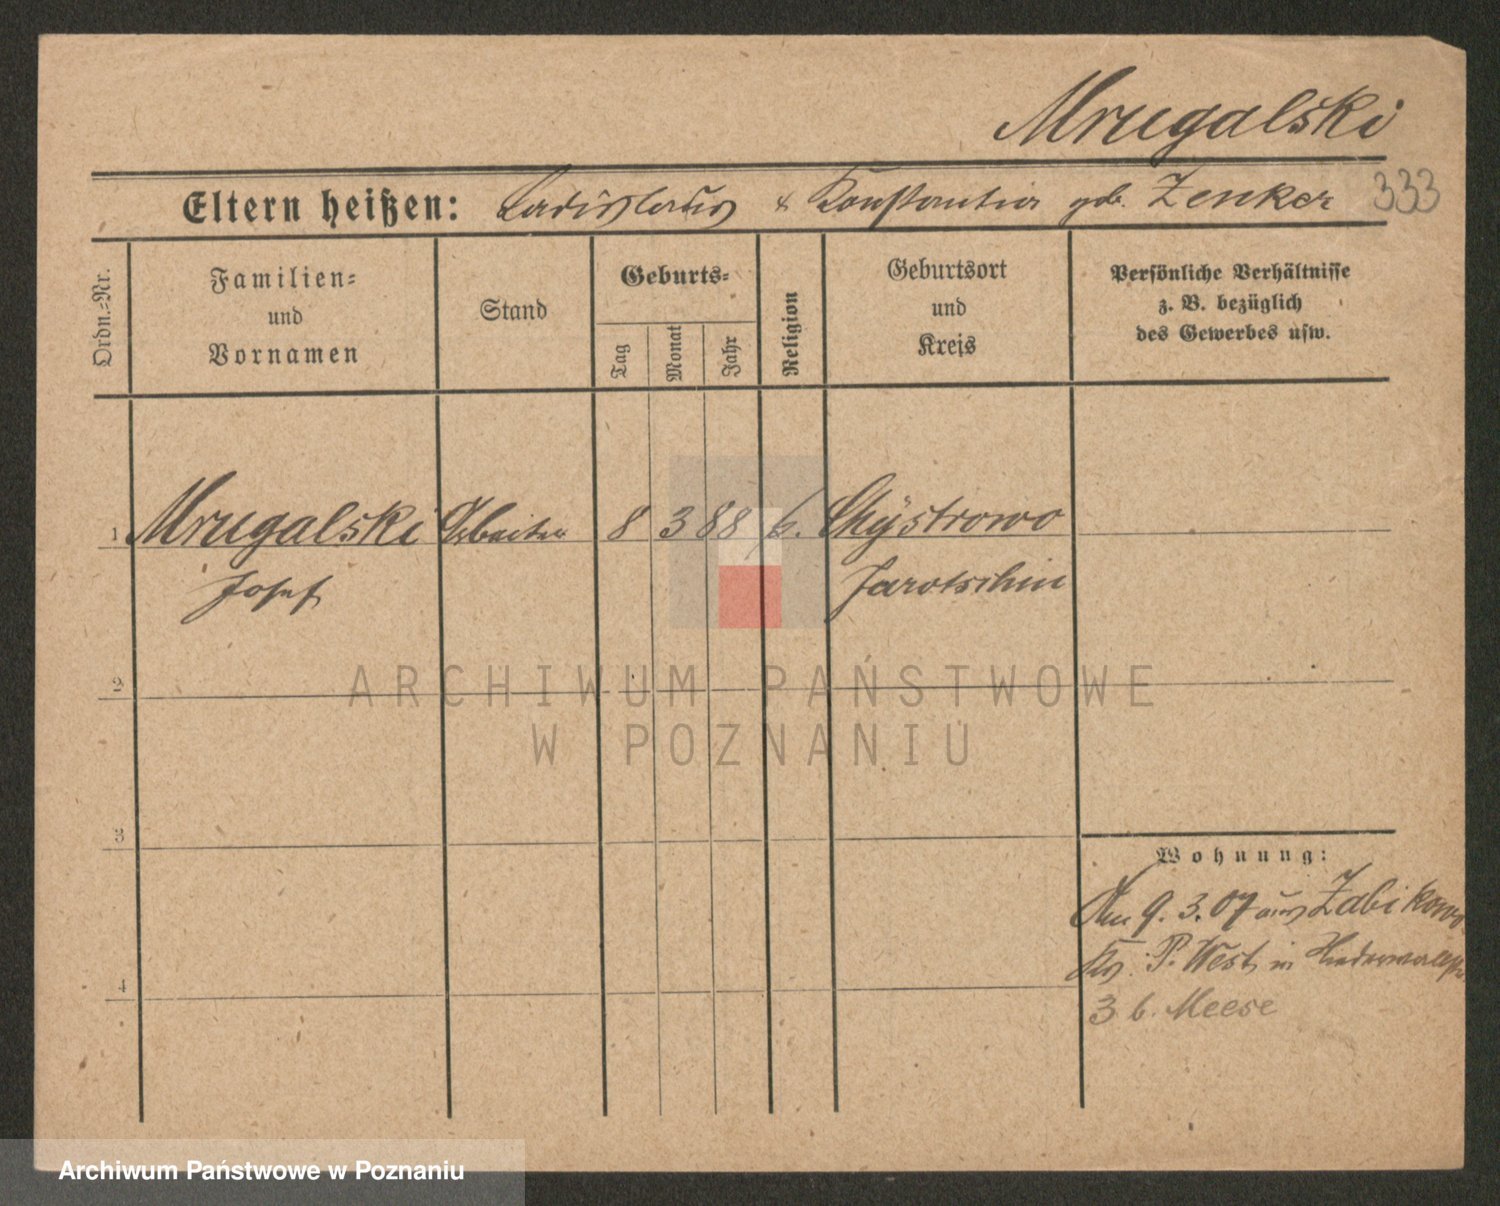 Mrugalski
Eltern heißen: Ladislaus & Konstantia geb. Zenker 333
Ordn.-Nr.
Familien-
und
Vornamen
Stand
Geburts-
Tag
Monat
Jahr
Religion
Geburtsort
und
Kreis
Persönliche Verhältnisse
z. B. bezüglich
des Gewerbes usw.
1 Mrugalski Arbeiter 8 3 88 k.
Josef Jarotschin
2
ARCHIWUM PAŃSTWOWE
W POZNANIU
3
Wohnung:
Am 9. 3. 07 aus Zabikowo
Kr. P. West in
4
3 b. Meese
Archiwum Państwowe w Poznaniu